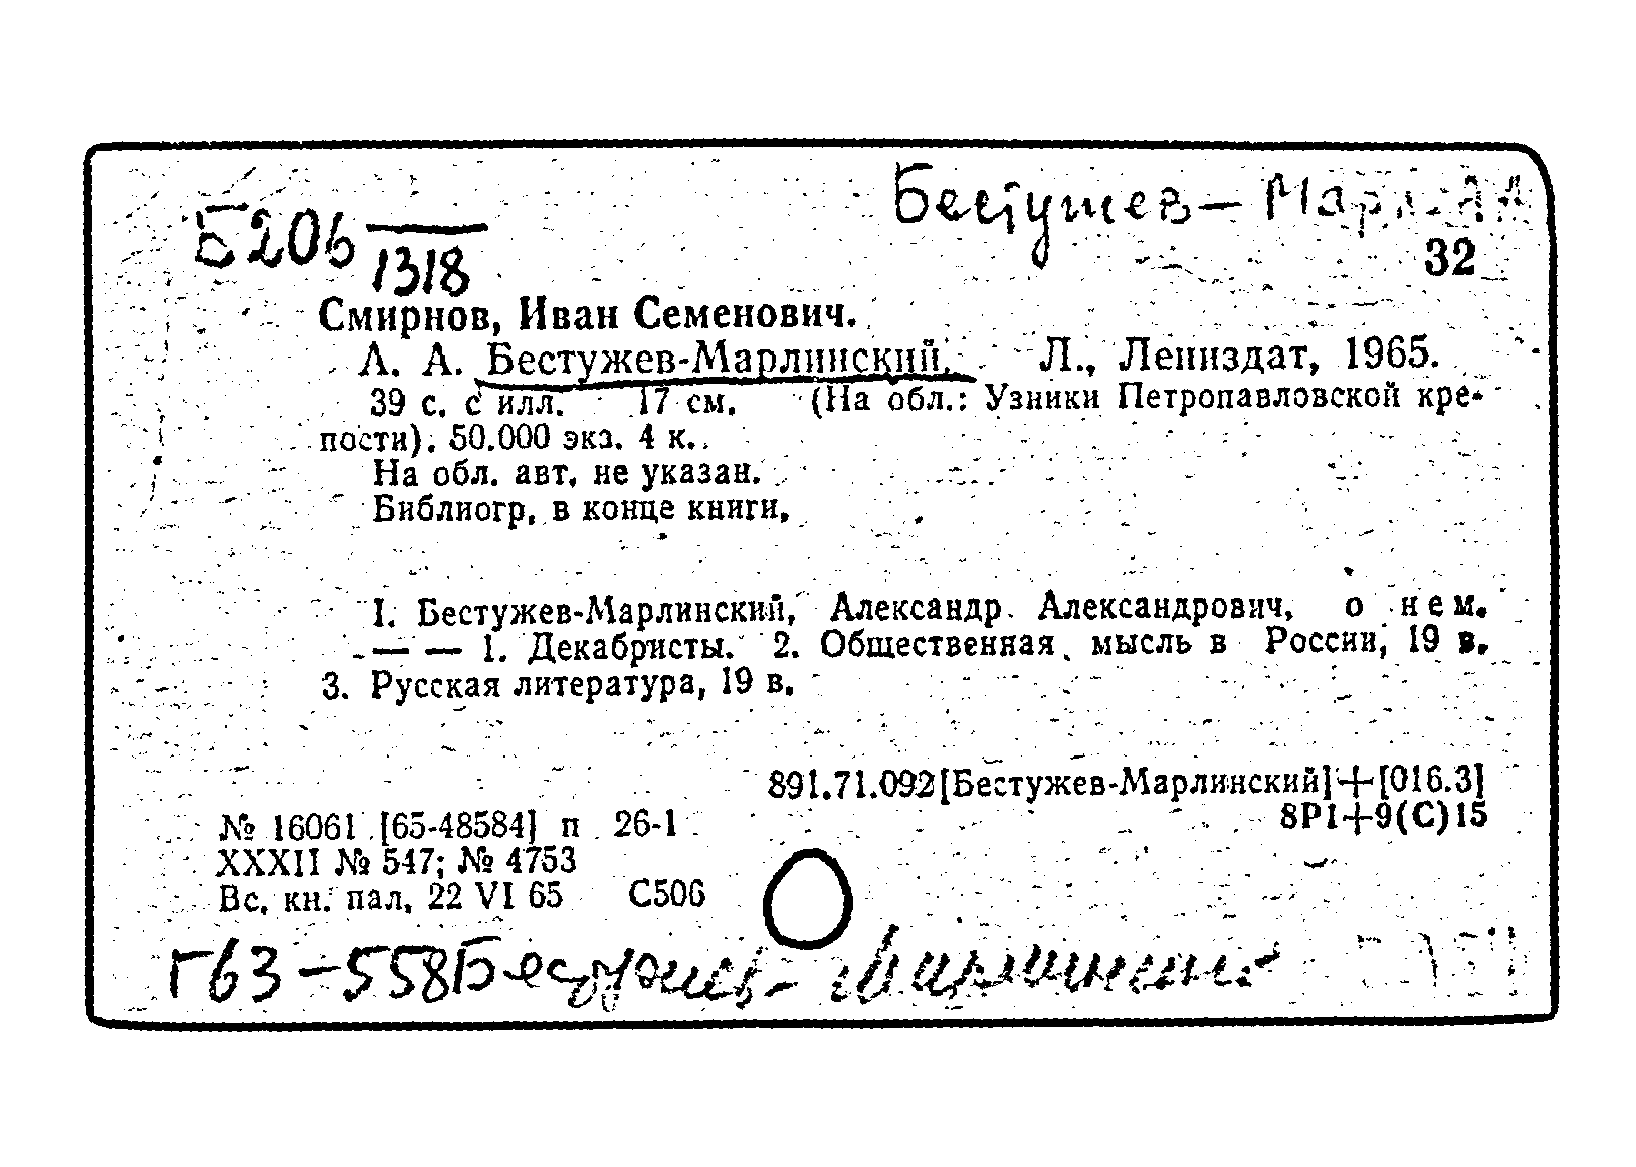 Бестужев-Марл. А А
Б206
1318
32
Смирнов, Иван Семенович.
А. А. Бестужев-Марлинский. Л., Лениздат, 1965.
39 с. с илл. 17 см. (На обл.: Узники Петропавловской кре-
пости). 50.000 экз. 4 к.
На обл. авт. не указан.
Библиогр. в конце книги.
I. Бестужев-Марлинский, Александр Александрович, о нем.
— — 1. Декабристы. 2. Общественная мысль в России, 19 в.
3. Русская литература, 19 в.
891.71.092[Бестужев-Марлинский]+[016.3]
8Р1+9(С)15
№ 16061 [65-48584] п 26-1
XXXII № 547; № 4753
Вс. кн. пал. 22 VI 65 С506
Г63-558 Бестужев-Марлинский